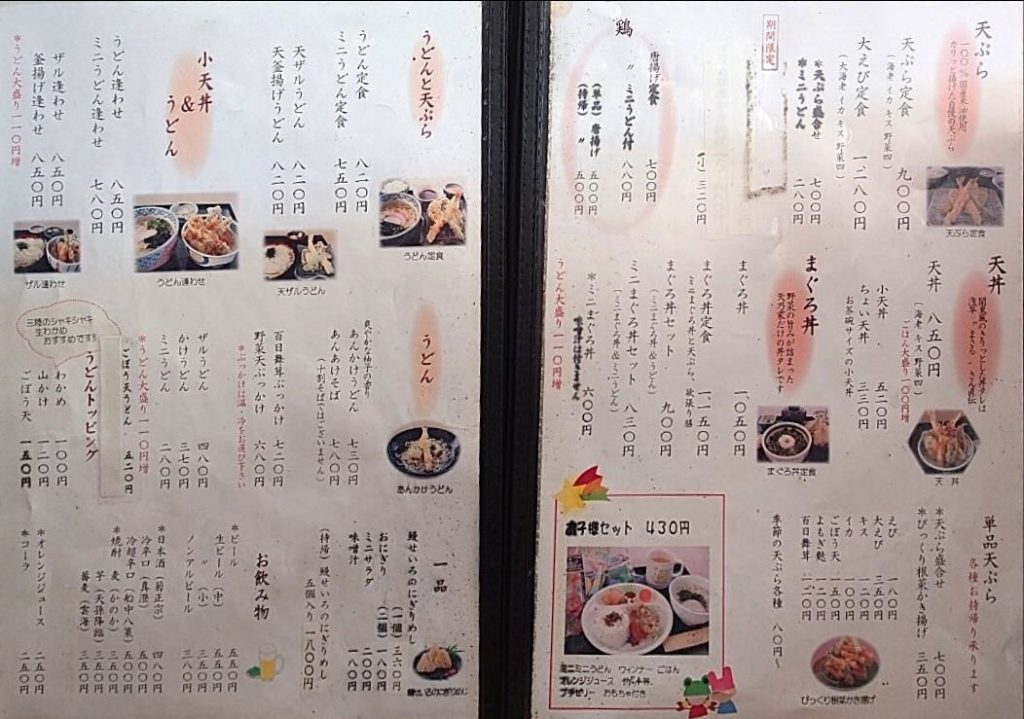 天ぷら
100%国産米油使用
カリッと揚げた自慢の天ぷら
天ぷら定食 九〇〇円
(海老 イカ キス 野菜四)
大えび定食 一、二八〇円
(大海老 イカ キス 野菜四)
*天ぷら盛合せ 七〇〇円
*ミニうどん 二八〇円
天ぷら定食
期間限定
(小) 三二〇円
鶏
唐揚げ定食 七〇〇円
〃 ミニうどん付 八八〇円
(単品) 唐揚げ 五〇〇円
(持帰) 〃 五〇〇円
天丼
天丼 八五〇円
(海老 イカ キス 野菜四)
ごはん大盛り一〇〇円増
小天丼 五二〇円
ちょい天丼 三三〇円
お茶碗サイズの小天丼
天丼
まぐろ丼
野菜の旨みが詰まった
矢乃家だけの丼タレです
まぐろ丼 一、〇五〇円
まぐろ丼定食 一、一五〇円
ミニまぐろ丼と天ぷら、欲張り膳
まぐろ丼セット 九〇〇円
(ミニまぐろ丼&うどん)
ミニまぐろ丼セット 八三〇円
(ミニまぐろ丼&ミニうどん)
*ミニまぐろ丼 六〇〇円
味噌汁は付きません
うどん大盛り一一〇円増
まぐろ丼定食
単品天ぷら
各種お持帰り承ります
*天ぷら盛合せ 七〇〇円
*びっくり根菜かき揚げ 三五〇円
えび 一八〇円
大えび 三五〇円
キス 一〇〇円
イカ 一〇〇円
ごぼう天 一五〇円
よもぎ麩 一一〇円
百日舞茸 二二〇円
季節の天ぷら各種 八〇円〜
びっくり根菜かき揚げ
お子様セット 430円
ミニミニうどん ウィンナー ごはん
オレンジジュース
プチゼリー おもちゃ付き
うどんと天ぷら
うどん定食 八二〇円
ミニうどん定食 七五〇円
天ザルうどん 八二〇円
天釜揚げうどん 八二〇円
うどん定食
天ザルうどん
小天丼
&
うどん
うどん逢わせ 八五〇円
ミニうどん逢わせ 七八〇円
ザル逢わせ 八五〇円
釜揚げ逢わせ 八五〇円
*うどん大盛り一一〇円増
うどん逢わせ
ザル逢わせ
うどん
爽やかな柚子の香り
あんかけうどん 七三〇円
あんかけそば 七八〇円
(十割そばではございません)
百日舞茸ぶっかけ 七二〇円
野菜天ぶっかけ 六八〇円
*ぶっかけは温・冷をお選び下さい
ザルうどん 四八〇円
かけうどん 三七〇円
ミニうどん 二八〇円
*うどん大盛り一一〇円増
ごぼう天うどん 五二〇円
あんかけうどん
三陸のシャキシャキ
生わかめ
おすすめです!!
うどんトッピング
わかめ 一〇〇円
山かけ 一二〇円
ごぼう天 一五〇円
一品
鰻せいろのにぎりめし
(一個) 三六〇円
おにぎり (二個) 一八〇円
ミニサラダ 二〇〇円
味噌汁 一八〇円
(持帰) 鰻せいろのにぎりめし
五個入り 一八〇〇円
お飲み物
*ビール 五五〇円
生ビール (中) 五五〇円
〃 (小) 三五〇円
ノンアルビール 三八〇円
*日本酒 (菊正宗) 四八〇円
冷辛口 (真澄)
冷超辛口 (船中八策)
*焼酎 麦 (かのか) 三五〇円
芋 (天孫降臨) 三五〇円
蕎麦 (雲海) 三五〇円
*オレンジジュース 二五〇円
*コーラ 二五〇円